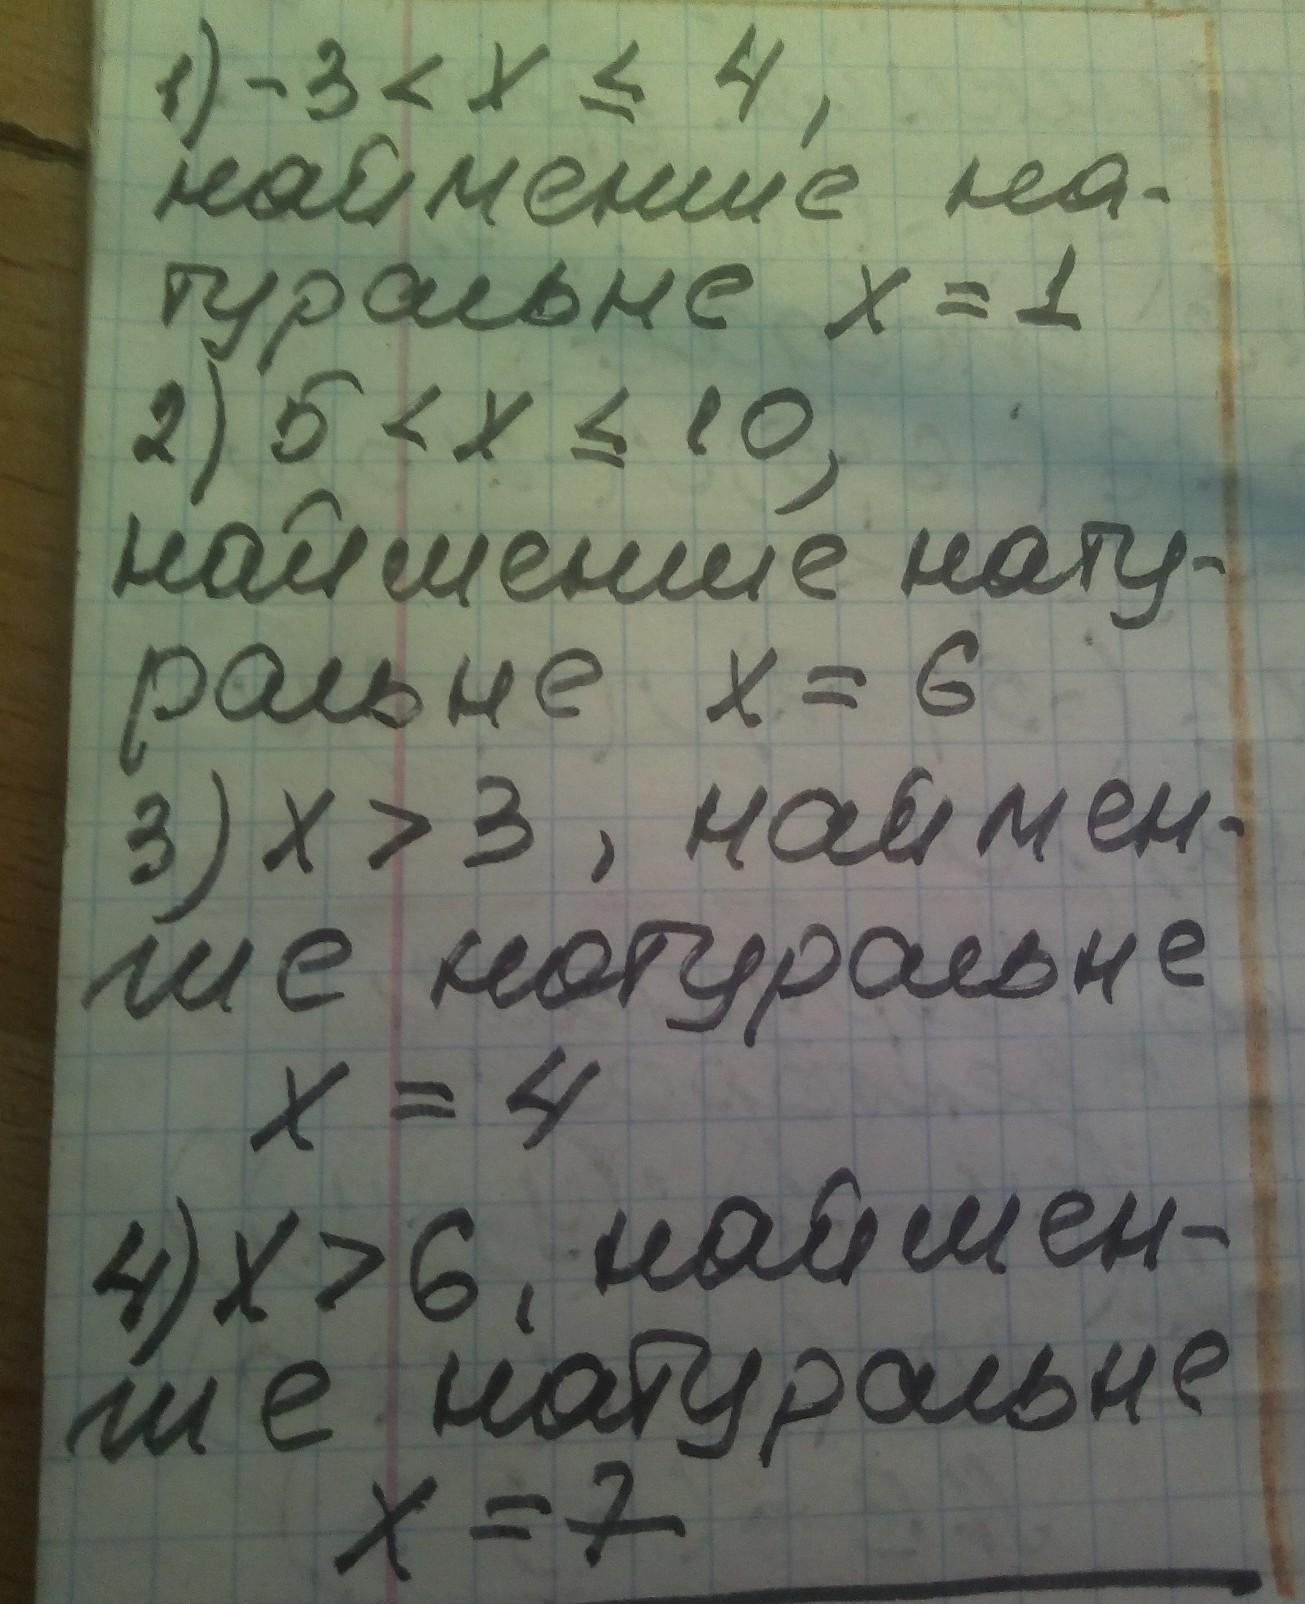 1) -3 < x ≤ 4,
найменше на-
туральне x = 1
2) 5 < x ≤ 10,
найменше нату-
ральне x = 6
3) x > 3, наймен-
ше натуральне
x = 4
4) x > 6, наймен-
ше натуральне
x = 7